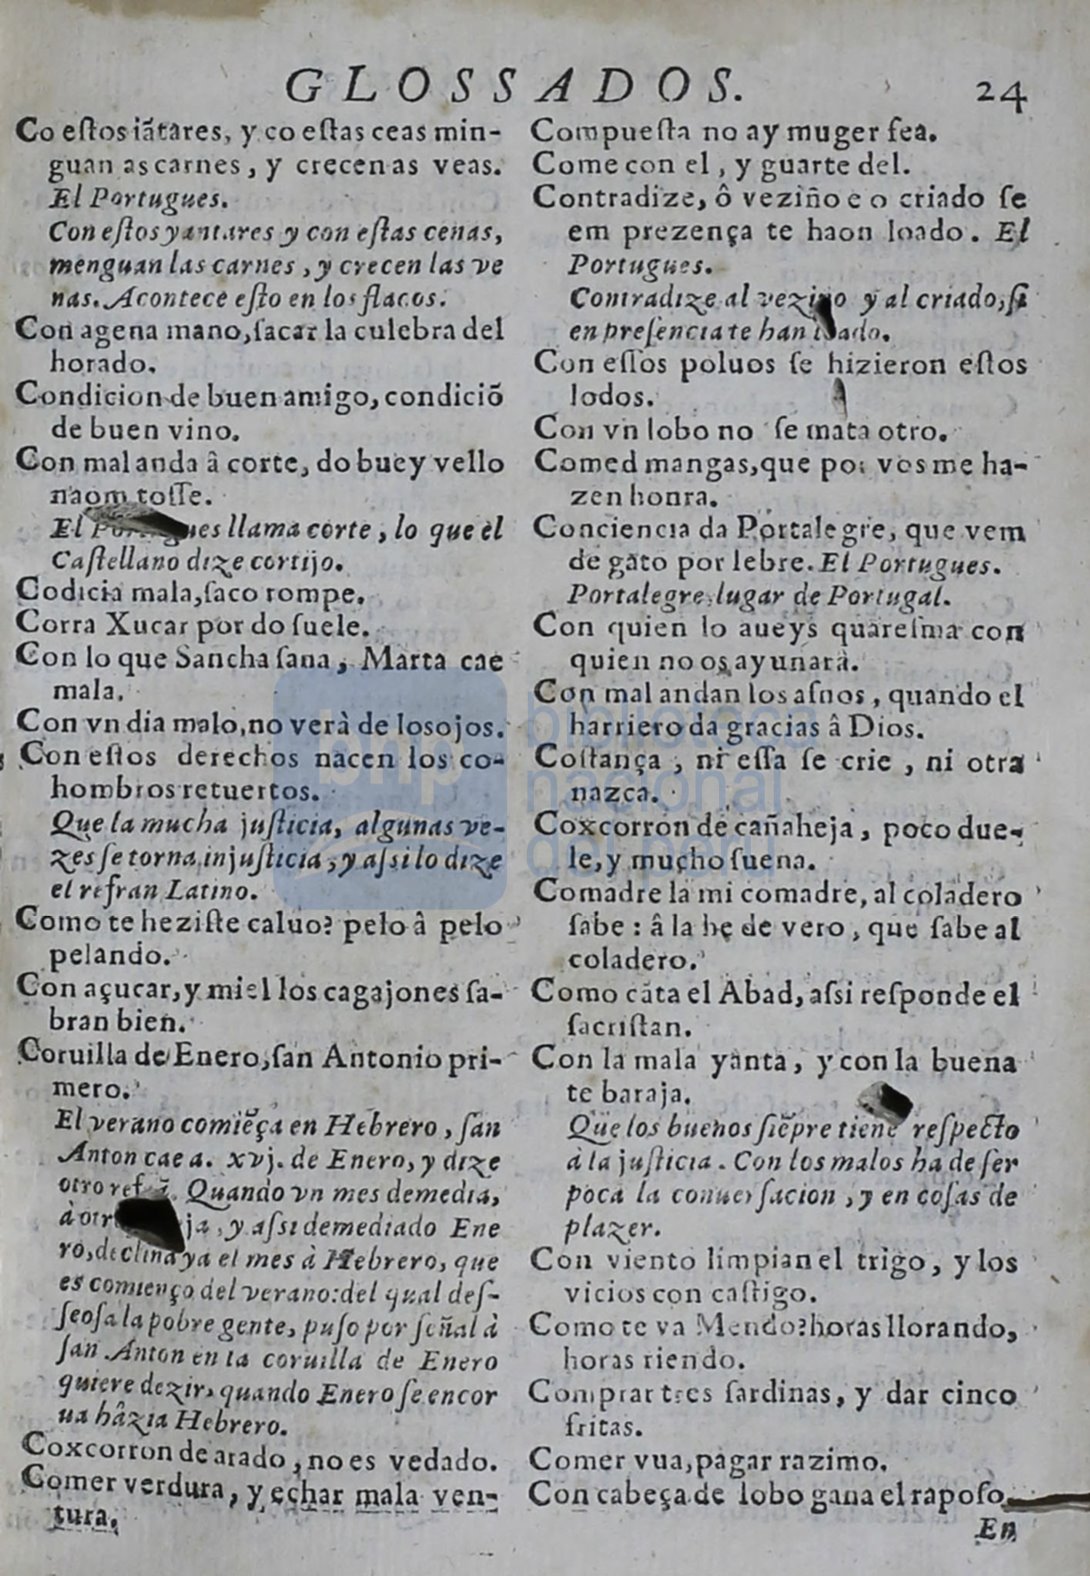 GLOSSADOS. 24
Co estos iãtares, y co estas ceas min-
guan as carnes, y crecen as veas.
El Portugues.
Con estos yantares y con estas cenas,
menguan las carnes, y crecen las ve
nas. Acontece esto en los flacos.
Con agena mano, sacar la culebra del
horado.
Condicion de buen amigo, condiciõ
de buen vino.
Con mal anda â corte, do buey vello
naom tosse.
El llama corte, lo que el
Castellano dize cortijo.
Codicia mala, saco rompe.
Corra Xucar por do suele.
Con lo que Sancha sana, Marta cae
mala.
Con vn dia malo, no verà de los ojos.
Con estos derechos nacen los co-
hombros retuertos.
Que la mucha justicia, algunas ve-
zes se torna injusticia, y assi lo dize
el refran Latino.
Como te heziste caluo? pelo â pelo
pelando.
Con açucar, y miel los cagajones sa-
bran bien.
Coruilla de Enero, san Antonio pri-
mero.
El verano comiẽça en Hebrero, san
Anton cae a. xvj. de Enero, y dize
otro Quando vn mes demedia,
à y assi demediado Ene
ro, declina ya el mes à Hebrero, que
es comienço del verano: del qual des-
seosa la pobre gente, puso por señal à
san Anton en la coruilla de Enero
quiere dezir, quando Enero se encor
ua hâzia Hebrero.
Coxcorron de arado, no es vedado.
Comer verdura, y echar mala ven-
tura.
Compuesta no ay muger fea.
Come con el, y guarte del.
Contradize, ô veziño e o criado se
em prezença te haon loado. El
Portugues.
Contradize al vezino y al criado, si
en presencia te han loado.
Con essos poluos se hizieron estos
lodos.
Con vn lobo no se mata otro.
Comed mangas, que por vos me ha-
zen honra.
Conciencia da Portalegre, que vem
de gato por lebre. El Portugues.
Portalegre, lugar de Portugal.
Con quien lo aueys quaresma con
quien no os ayunarà.
Con mal andan los asnos, quando el
harriero da gracias â Dios.
Costança, ni essa se crie, ni otra
nazca.
Coxcorron de cañaheja, poco due-
le, y mucho suena.
Comadre la mi comadre, al coladero
sabe: â la he de vero, que sabe al
coladero.
Como cata el Abad, assi responde el
sacristan.
Con la mala yanta, y con la buena
te baraja.
Que los buenos siẽpre tiene respecto
à la justicia. Con los malos ha de ser
poca la conuersacion, y en cosas de
plazer.
Con viento limpian el trigo, y los
vicios con castigo.
Como te va Mendo? horas llorando,
horas riendo.
Comprar tres sardinas, y dar cinco
fritas.
Comer vua, pagar razimo.
Con cabeça de lobo gana el raposo.
En
bnp biblioteca
nacional
del perú